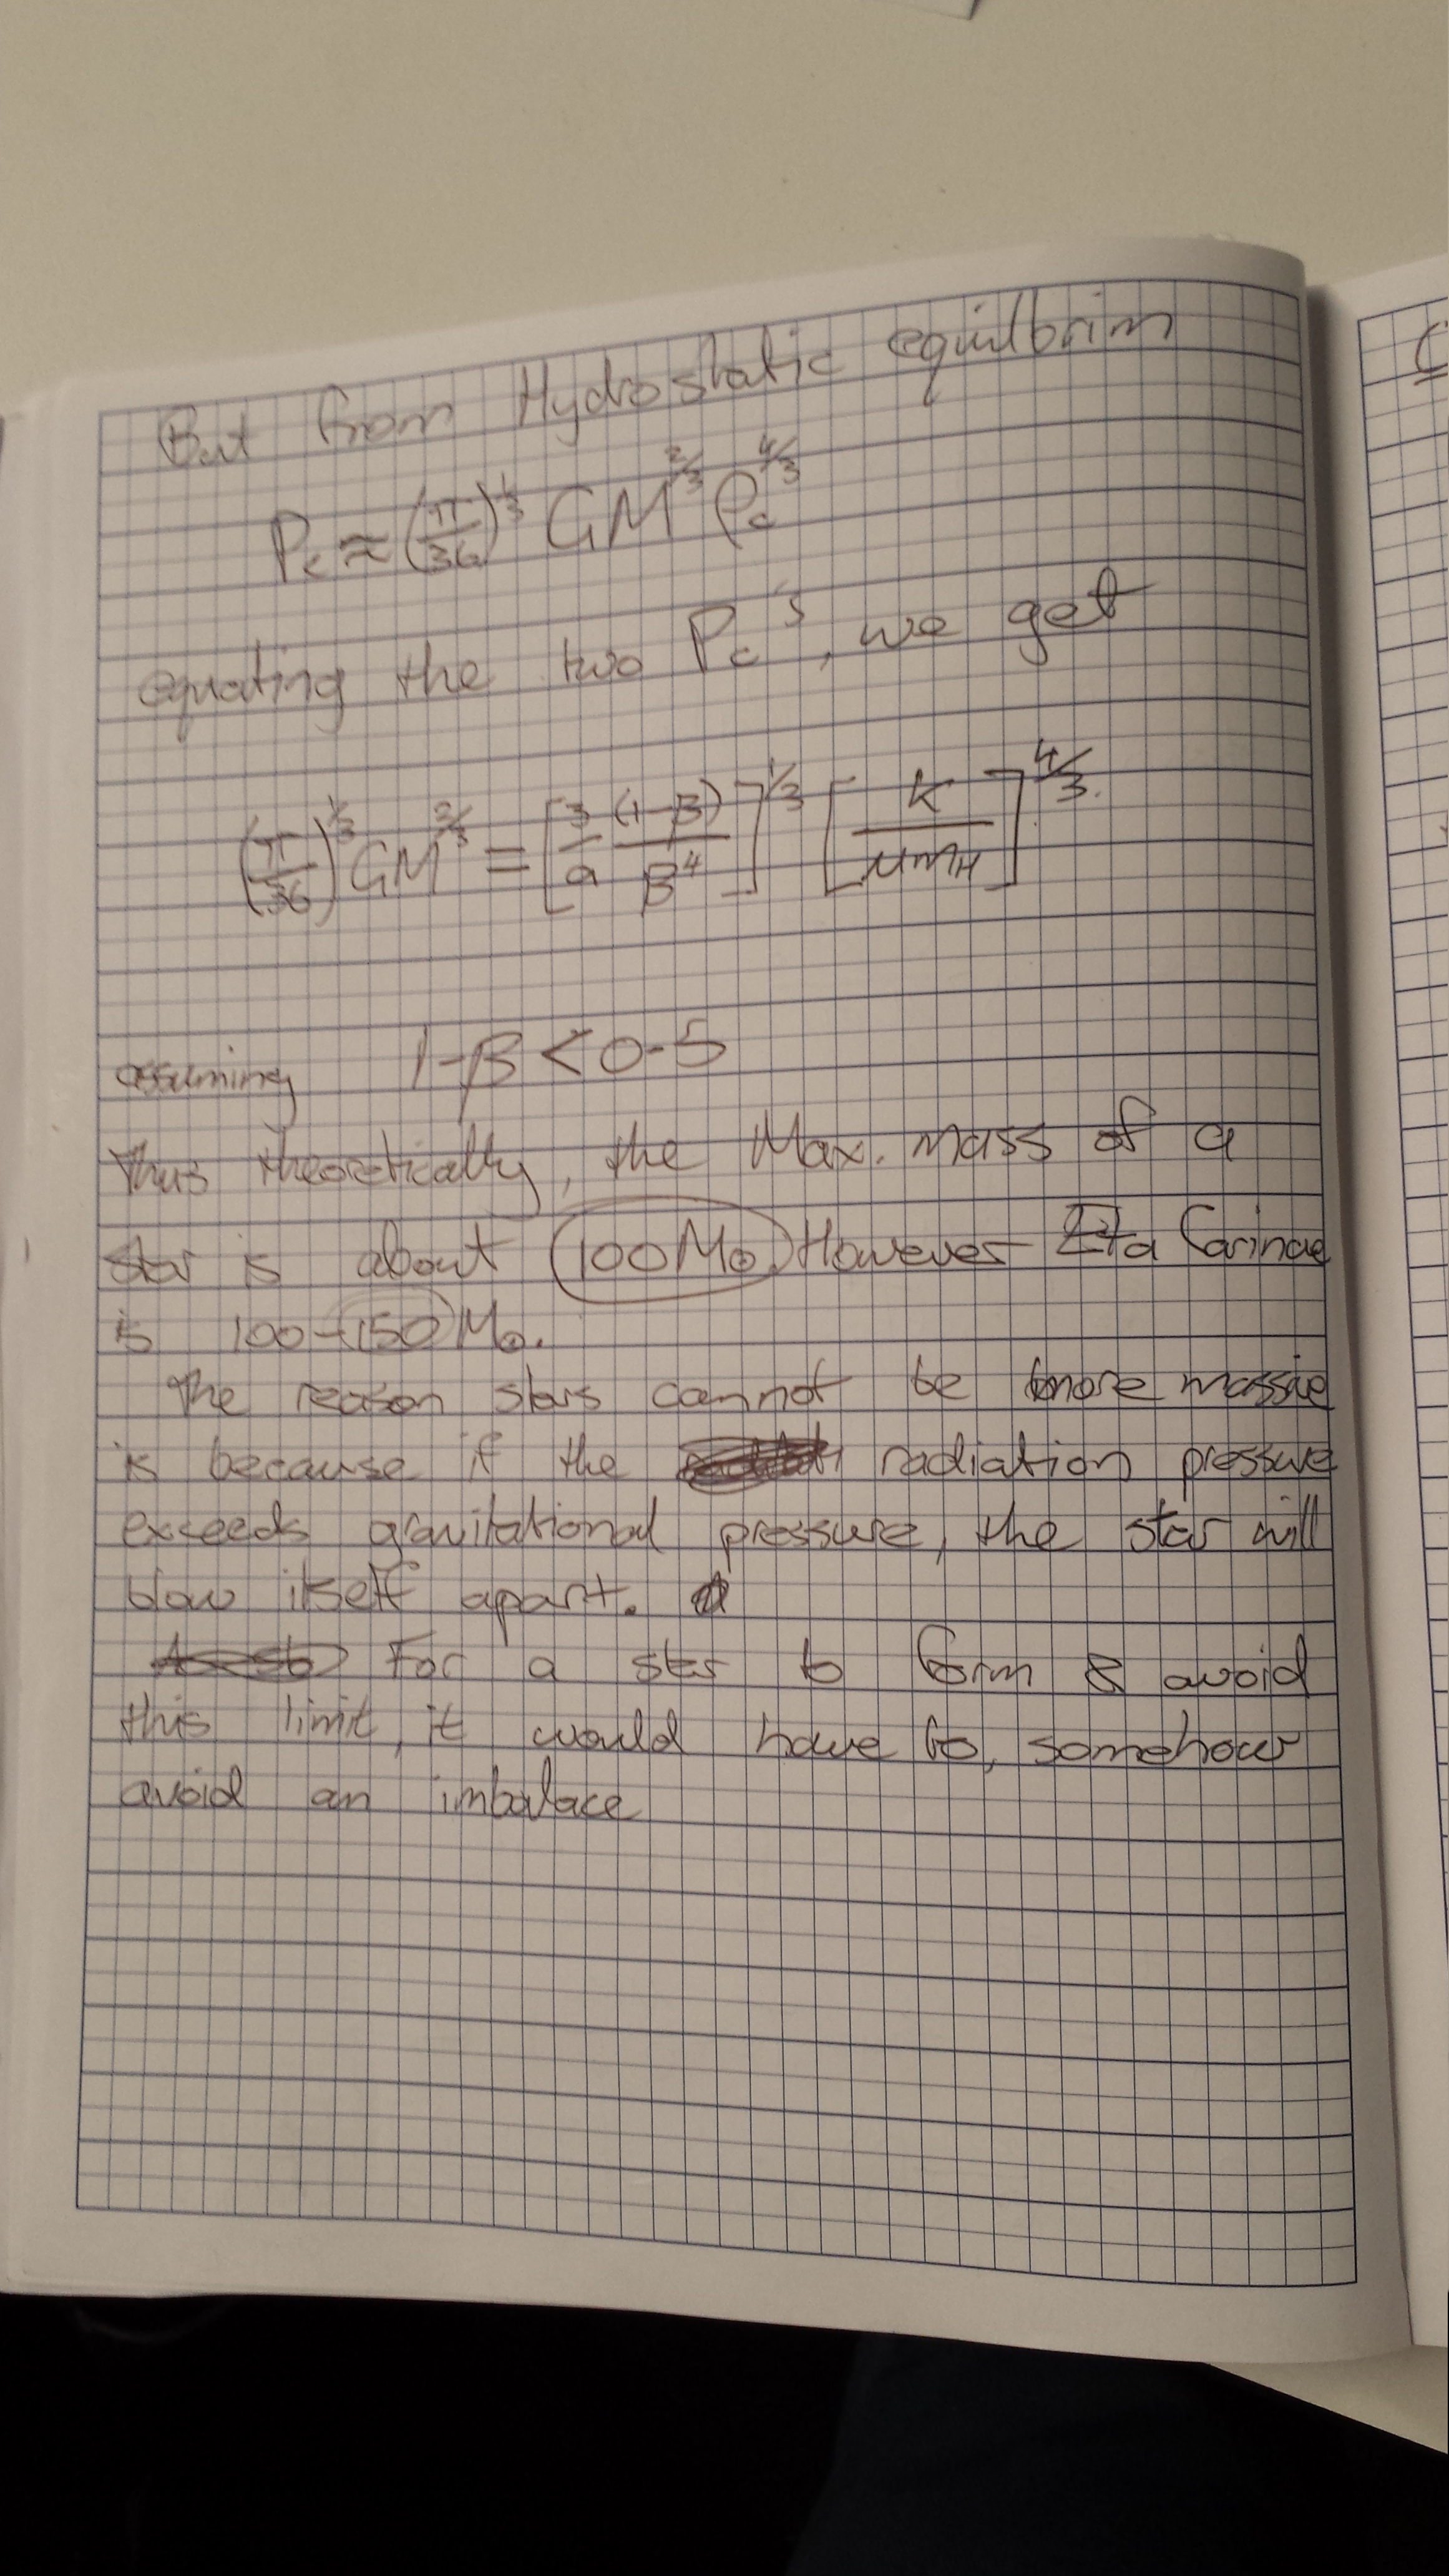 But from Hydrostatic equilbrim,
Pc ≈ (π/36)^1/3 GM^2/3 ρc^4/3
equating the two Pc's, we get
(π/36)^1/3 GM^2/3 = [3/a (1-β)/β^4]^1/3 [k/μmH]^4/3.
assuming 1-β < 0.5
Thus theoretically, the Max. mass of a
star is about 100M⊙. However Eta Carinae
is 100-150 M⊙.
The reason stars cannot be more massive
is because if the radiation pressure
exceeds gravitational pressure, the star will
blow itself apart.
For a star to form & avoid
this limit, it would have to, somehow
avoid an imbalace